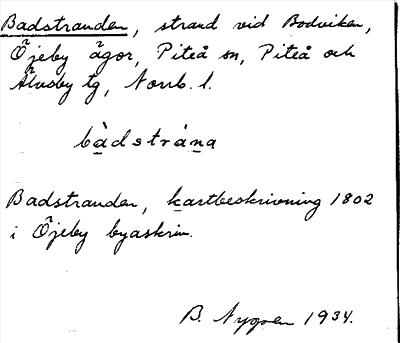 Badstranden, strand vid Bodviken,
Öjeby ägor, Piteå sn, Piteå och
Älvsby tg, Norrb. l.
bàdstráṉa
Badstranden, kartbeskrivning 1802
i Öjeby byaskrin.
B. Nygren 1934.